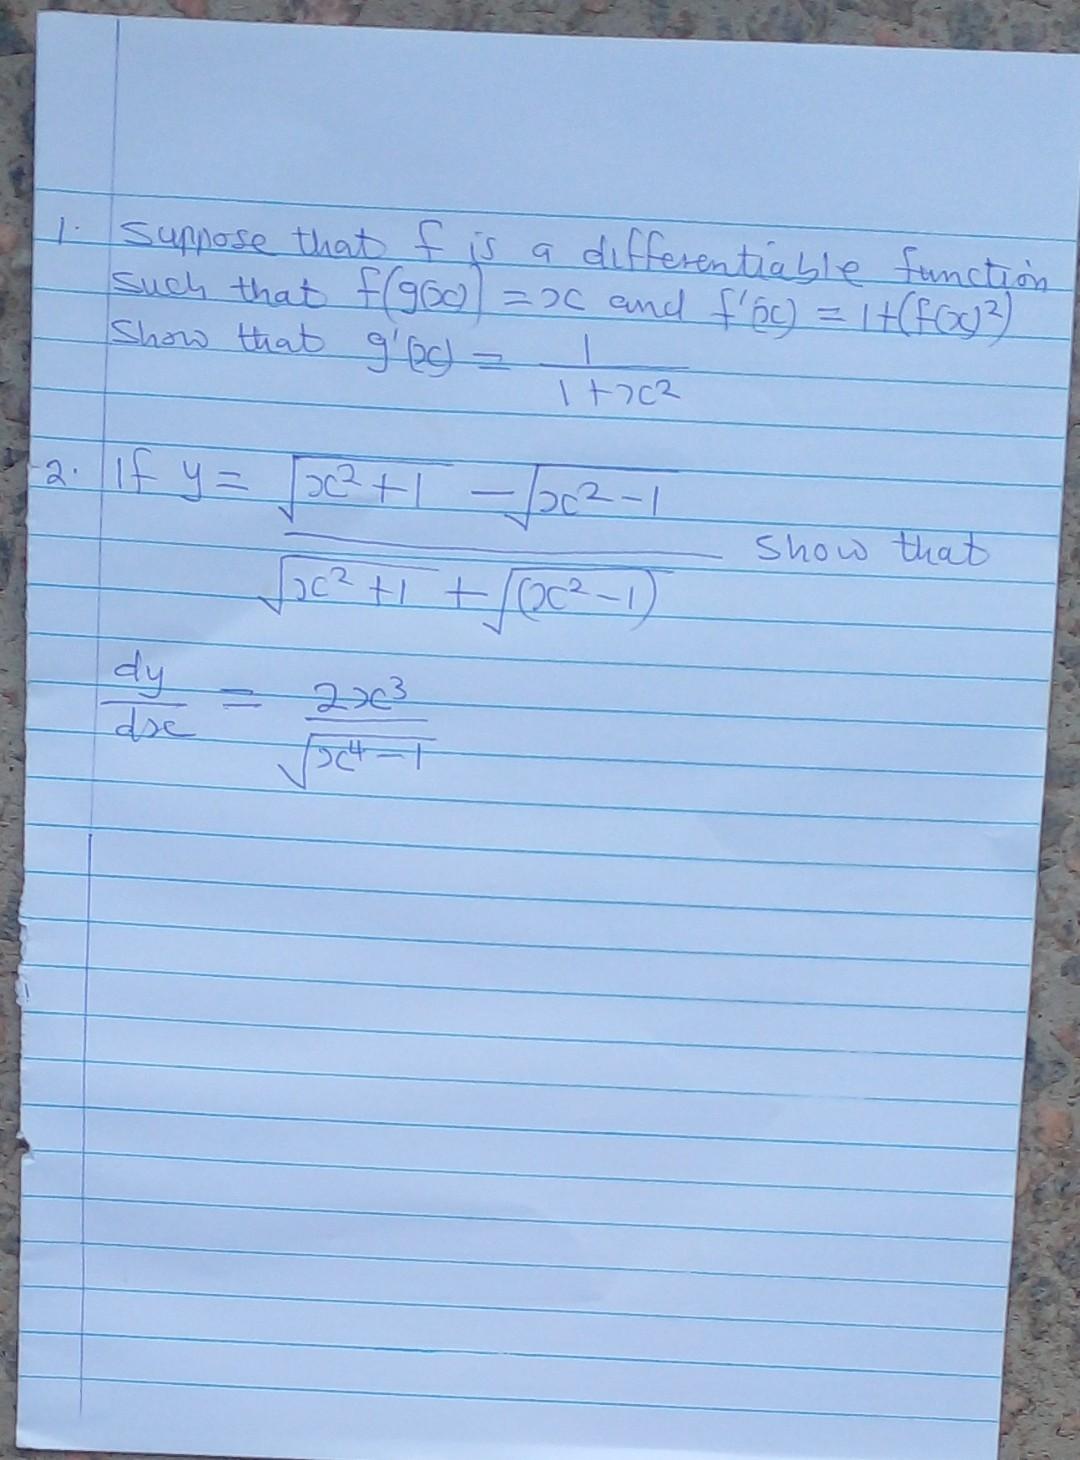 1. Suppose that f is a differentiable function
such that f(g(x)) = x and f'(x) = 1+(f(x)²)
Show that g'(x) = 1/(1+x²)
2. If y = (√(x²+1) - √(x²-1))/(√(x²+1) + √((x²-1))) Show that
dy/dx = 2x³/√(x⁴-1)